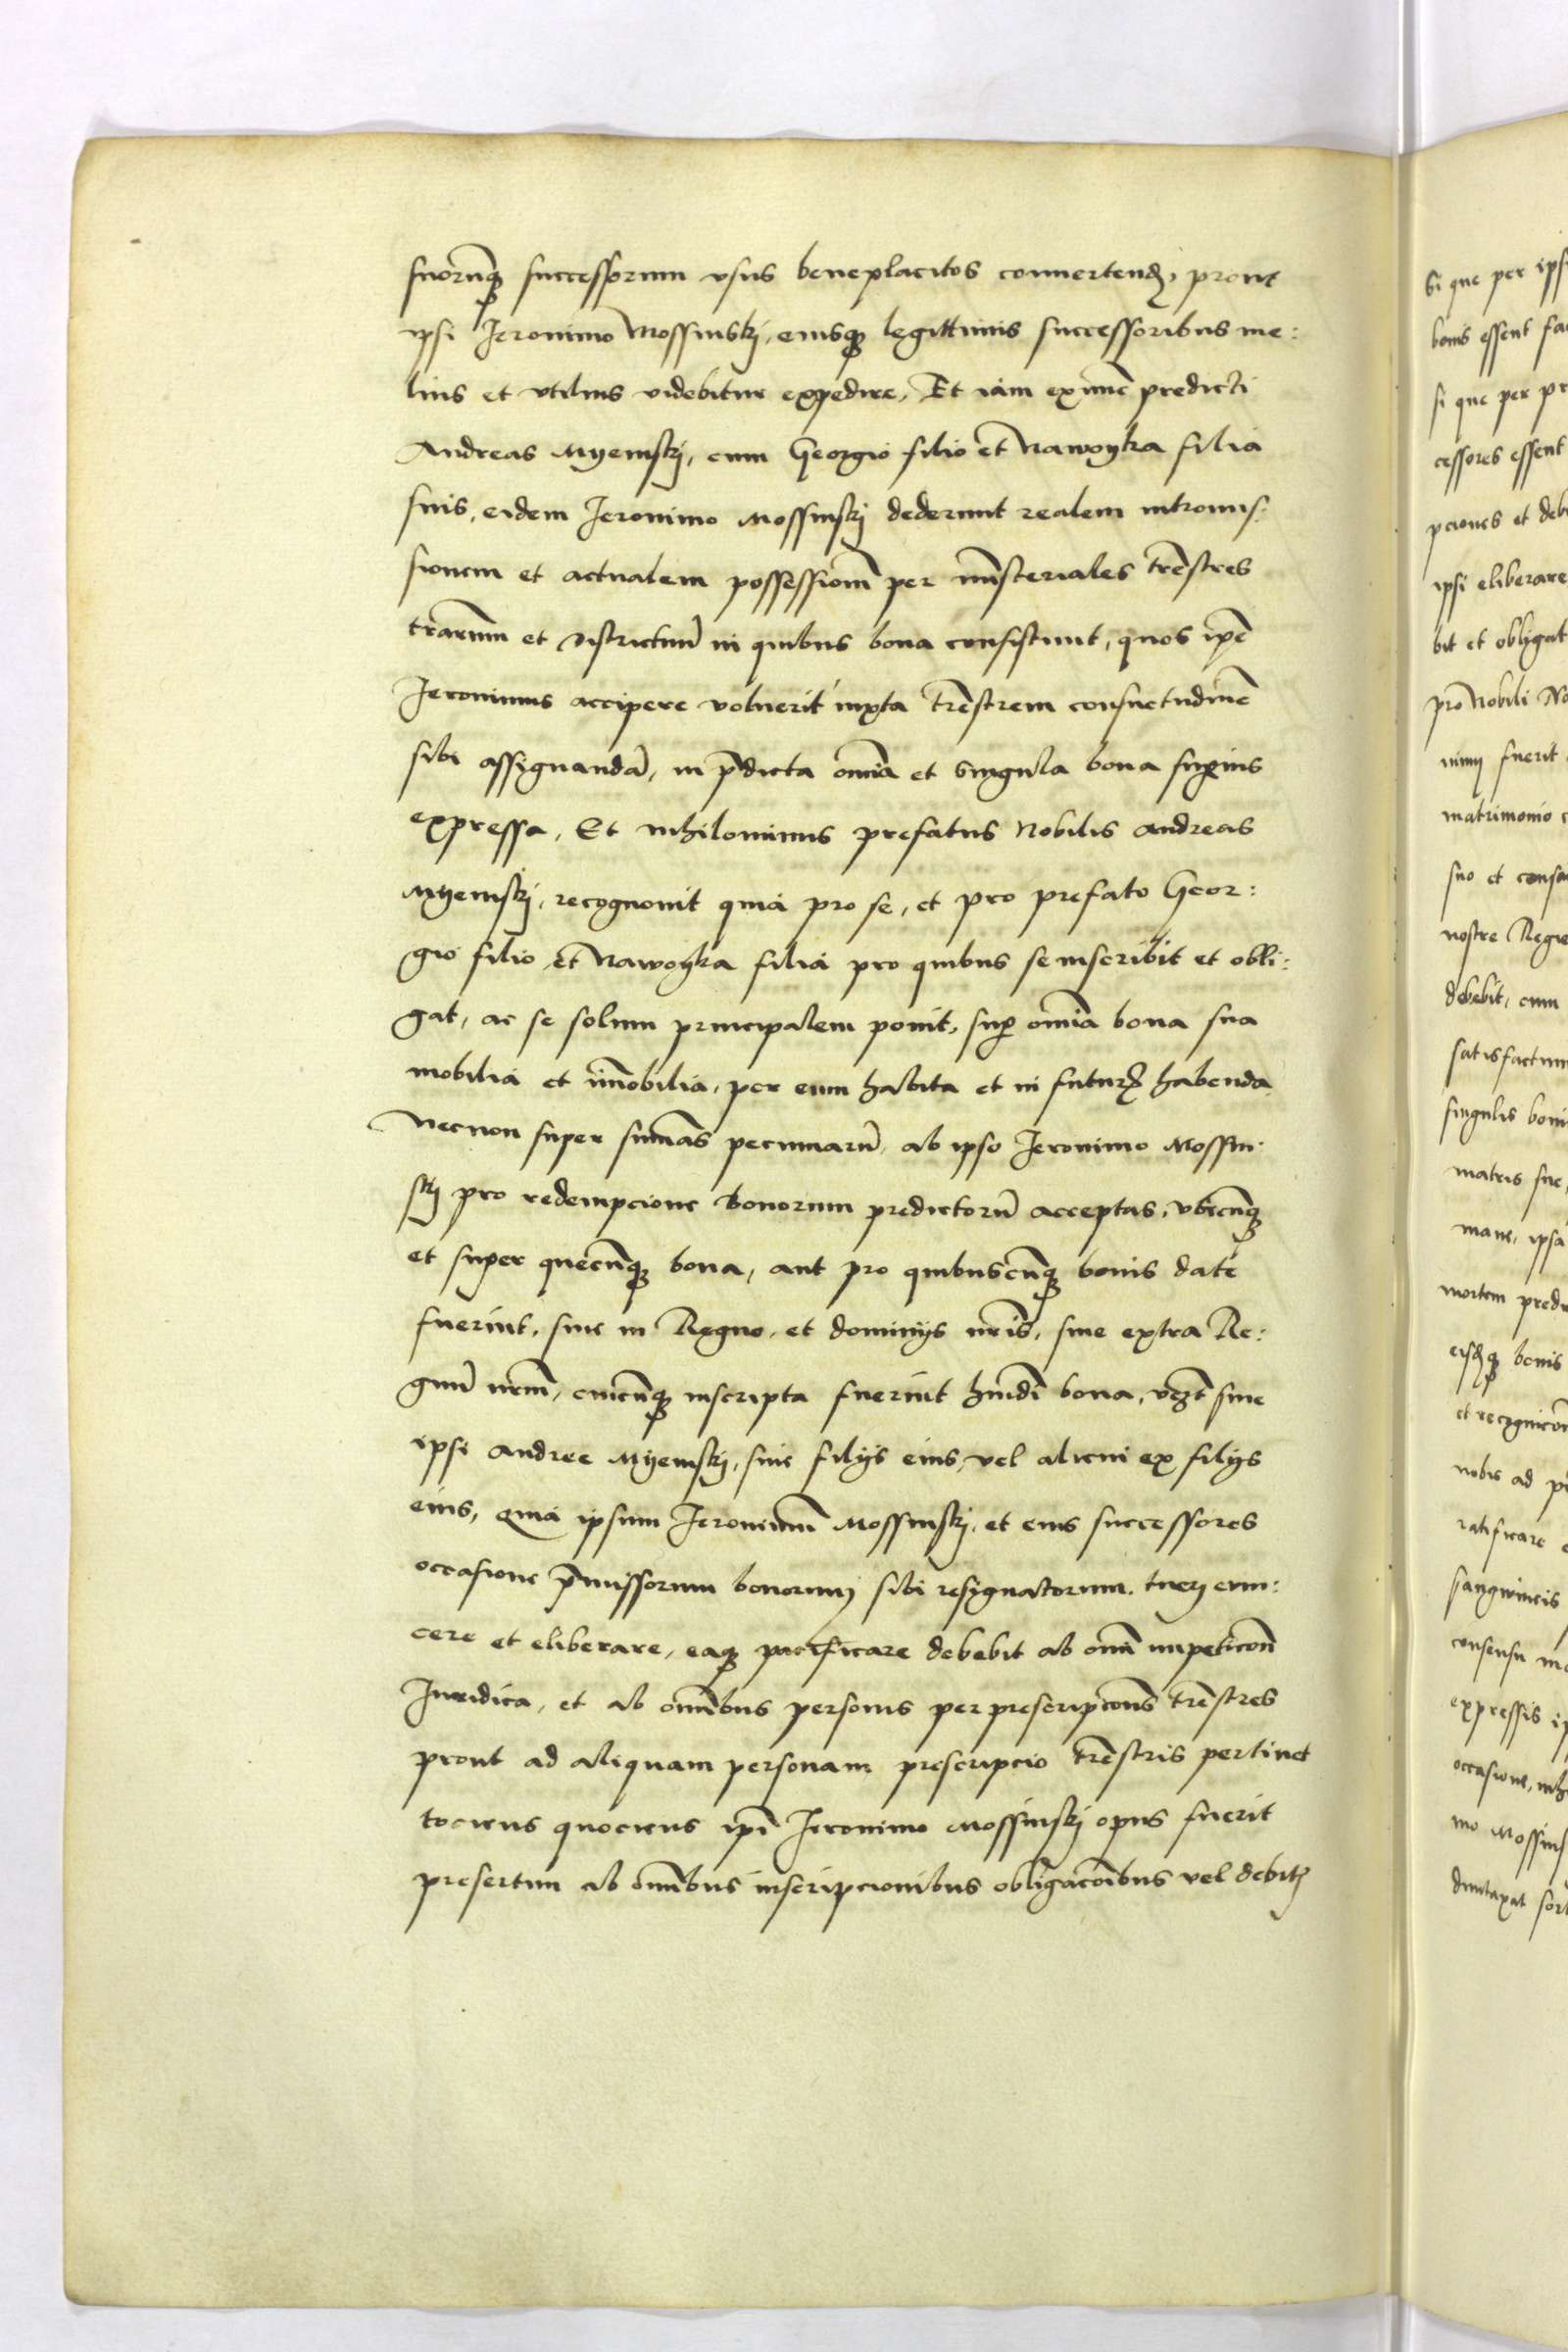 suorumq successorum vsus beneplacitos conuertend, prout
ipsi Jeronimo Mossinskj, eiusq legittimis successoribus me:
lius et vtilius videbitur expedire, Et iam exnunc predicti
Andreas Myemskj, cum Georgio filio et Nawoyka filia
suis, eidem Jeronimo Mossinskj dederunt realem intromis:
sionem et actualem possessiom̄ per mīsteriales trēstres
trārum et districtuū in quibus bona consistunt, quos ipē
Jeronimus accipere voluerit iuxta trēstrem consuetudinē
sibi assignandā, in p̄dicta om̄ia et singula bona superius
expressa, Et nihilominus prefatus Nobilis Andreas
Myemskj, recognouit quia pro se, et pro prefato Geor:
gio filio et Nawoyka filia pro quibus se inscribit et obli:
gat, ac se solum principalem ponit, sup om̄ia bona sua
mobilia et im̄obilia, per eum habita et in futur habenda
Necnon super sum̄as pecuniarū, ab ipso Jeronimo Mossin:
skj pro redempcione bonorum predictorū acceptas, vbicūq
et super quecūq bona, aut pro quibuscūq bonis date
fuerint, siue in Regno, et dominijs nr̄is, siue extra Re:
gnū nr̄m, cuicūq inscripta fuerint hmōdi bona, vezt siue
ipsi Andree Myemskj, siue filijs eius, vel alicui ex filijs
eius, Quia ipsum Jeronimū Mossinskj, et eius successores
occasione p̄missorum bonorum sibi resignatorum, tueri euin:
cere et eliberare, eaq pacificare debebit ab om̄i impeticoñ
Juridica, et ab om̄ibus personis per prescripcoñs trēstres
prout ad aliquam personam prescripcio trēstris pertinet
tociens quociens ipī Jeronimo Mossinskj opus fuerit
presertim ab om̄ibus inscripcionibus obligacoībus vel debit
Si que per ipsi
bonis essent fa
si que per pr
cessores essent
pciones et deb
ipsi eliberare
bit et obligat
pro Nobili No
fuerit
matrimonio
suo et consen
nostre Regie
debebit, cum
satisfactum
singulis boni
matris sue,
mane, ipsa
mortem predi
eisdq bonis
et recognicon
nobis ad
ratificare
sangwineis
consensu
expressis
occasione,
mo Mossins
duntaxat sor